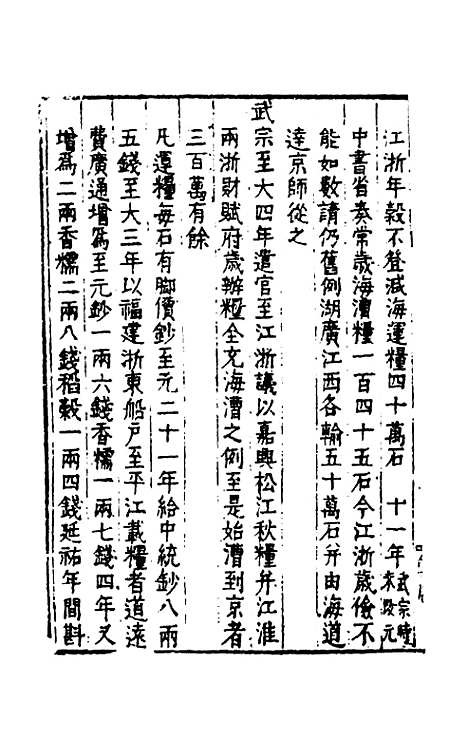 江浙年穀不登減海運糧四十萬石　十一年武宗時未改元
中書省奏常歲海漕糧一百四十五石今江浙歲儉不
能如數請仍舊例湖廣江西各輸五十萬石并由海道
達京師從之
武宗至大四年遣官至江浙議以嘉興松江秋糧并江淮
兩浙財賦府歲辦糧全充海漕之例至是始漕到京者
三百萬有餘
凡運糧每石有脚價鈔至元二十一年給中統鈔八兩
五錢至大三年以福建浙東船戶至平江載糧者道遠
費廣通增爲至元鈔一兩六錢香糯一兩七錢四年又
增爲二兩香糯二兩八錢稻穀一兩四錢延祐年間斟